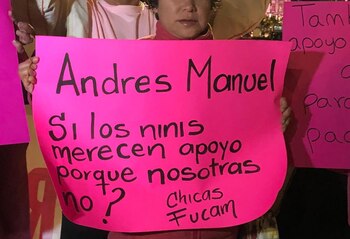 Andres Manuel
Si los ninis
merecen apoyo
porque nosotras
no?
Chicas
Fucam
Tam
apoyo
para